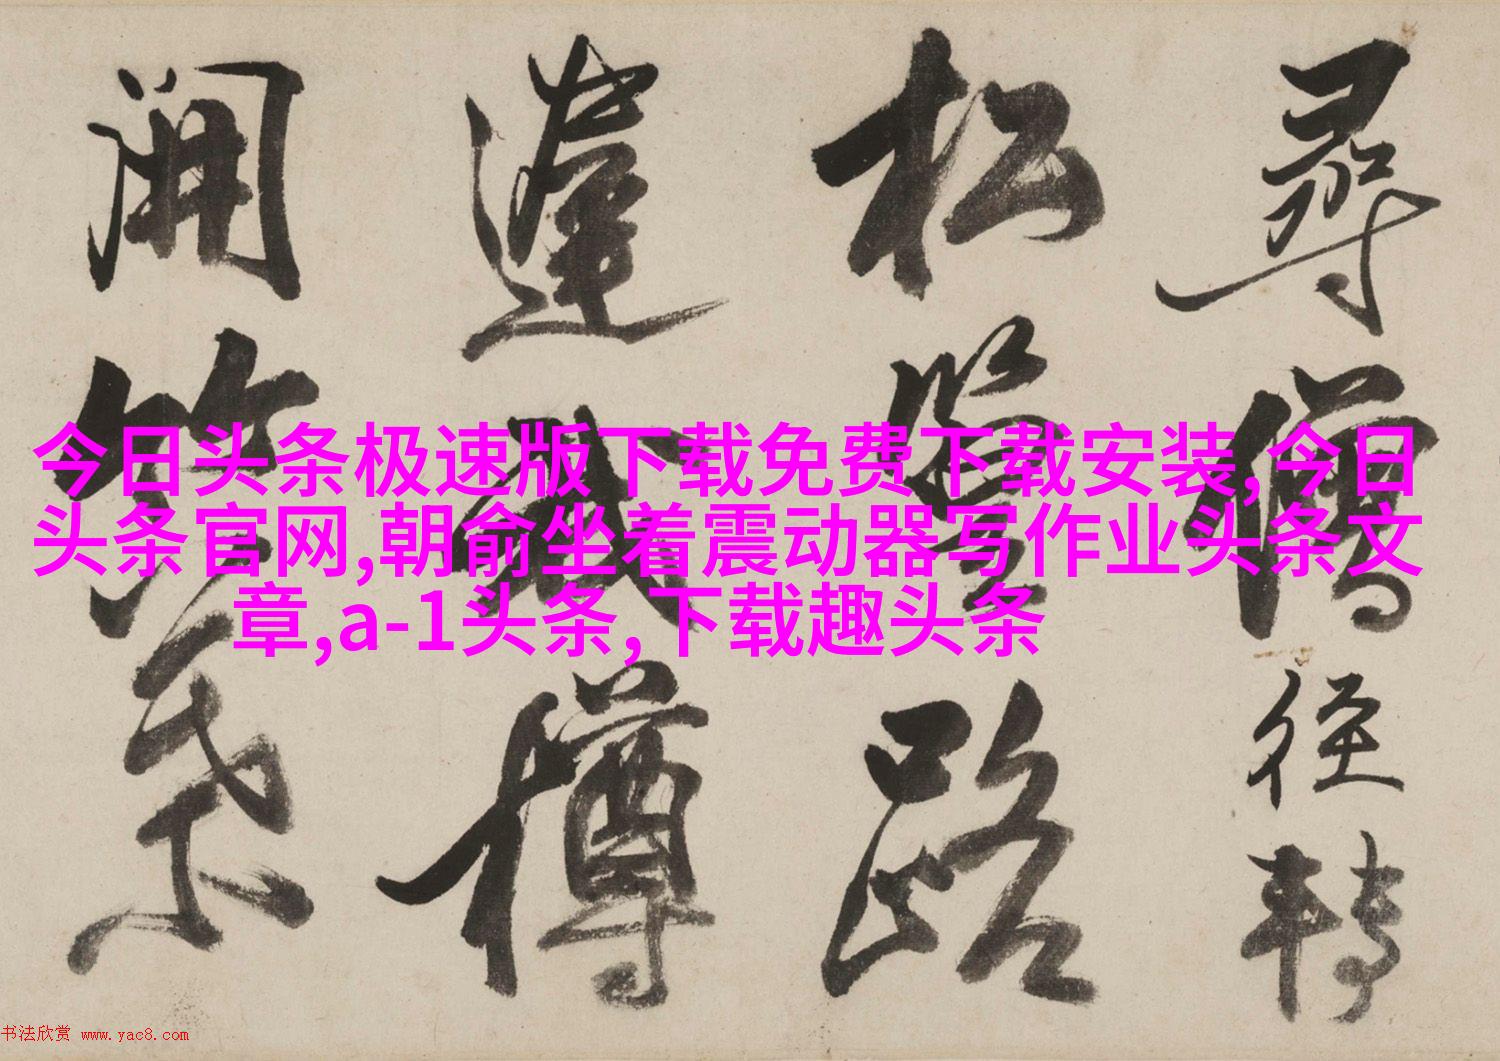 尋僧徑轉
松蘿路
蓬我樽
開笑
今日头条极速版下载免费下载安装,今日
头条官网,朝俞坐着震动器写作业头条文
章,a-1头条,下载趣头条
书法欣赏 www.yac8.com